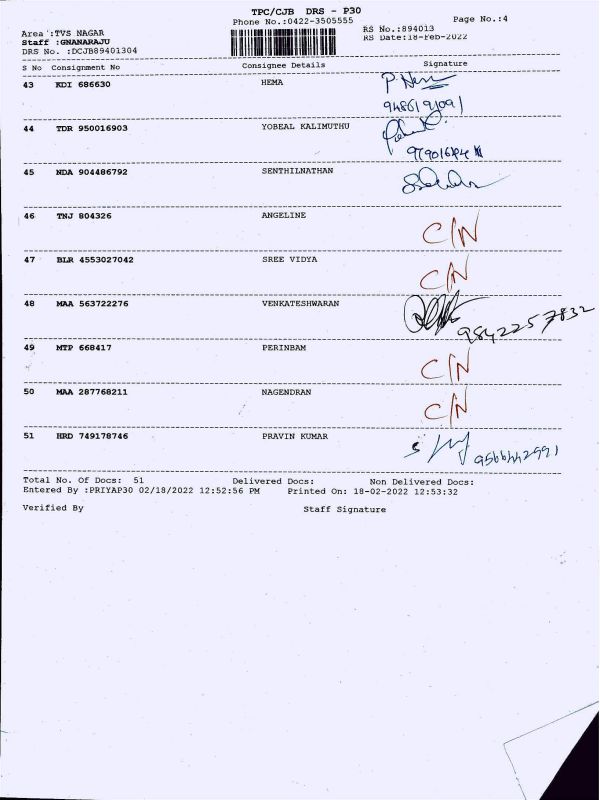 TPC/CJB DRS - P30
Phone No.:0422-3505555 Page No.:4
Area :TVS NAGAR RS No.:894013
Staff :GNANARAJU RS Date:18-Feb-2022
DRS No. :DCJB89401304
S No Consignment No Consignee Details Signature
43 KDI 686630 HEMA
44 TDR 950016903 YOBEAL KALIMUTHU
45 NDA 904486792 SENTHILNATHAN
46 TNJ 804326 ANGELINE C/N
47 BLR 4553027042 SREE VIDYA C/N
48 MAA 563722276 VENKATESHWARAN 9842257832
49 MTP 668417 PERINBAM C/N
50 MAA 287768211 NAGENDRAN C/N
51 HRD 749178746 PRAVIN KUMAR
Total No. Of Docs: 51 Delivered Docs: Non Delivered Docs:
Entered By :PRIYAP30 02/18/2022 12:52:56 PM Printed On: 18-02-2022 12:53:32
Verified By Staff Signature